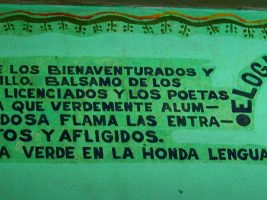 E LOS BIENAVENTURADOS Y
ILLO, BALSAMO DE LOS
LICENCIADOS Y LOS POETAS
A QUE VERDEMENTE ALUM—
DOSA FLAMA LAS ENTRA—
TOS Y AFLIGIDOS.
A VERDE EN LA HONDA LENGUA
ELOG